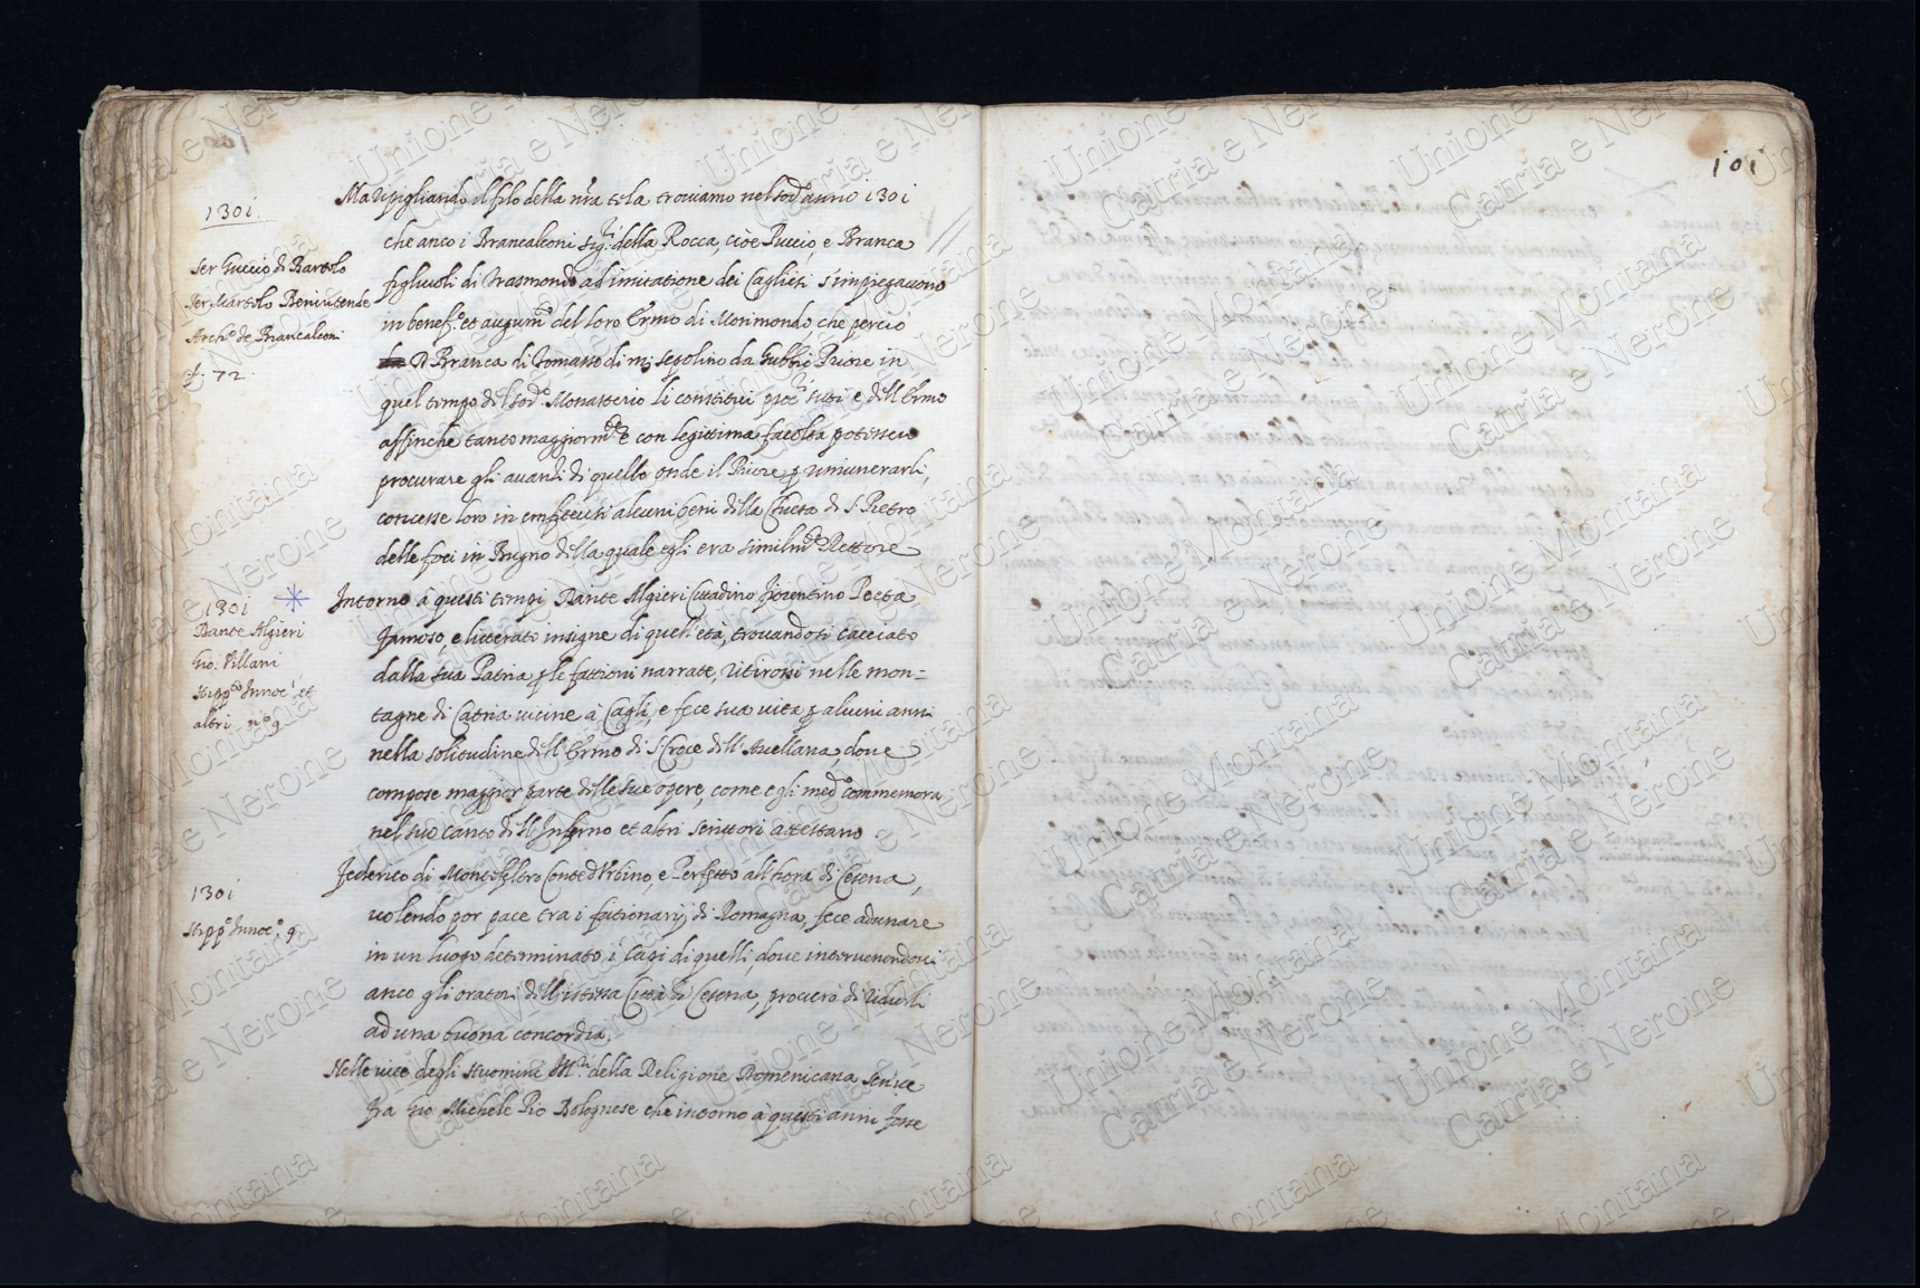 101
1301
Ser Guccio di Bartolo
Ser Martolo Benintende
Arch.o de Brancaleoni
f. 72
Ma ripigliando il filo della nra tela troviamo nel sod.o anno 1301
che anco i Brancaleoni sig.ri della Rocca, cioè Puccio, e Branca
figliuoli di Trasmondo ad imitatione dei Cagliesi s'impiegavono
in benef.o et augum.to del loro Ermo di Morimondo che perciò
D Branca di Tomasso di m; sepolino da Gubbio Priore in
quel tempo del sod.o Monasterio li constituì proc.ri suoi e dell'Ermo
affinche tanto maggiorm.te e con legittima facoltà potessero
procurare gli avanzi di quello onde il Priore p rimunerarli,
concesse loro in emfiteusi alcuni beni della Chiesa di S. Pietro
delle foci in Bugno della quale egli era similm.te Rettore
1301
Dante Algieri
Gio: Villani
Hipp.o Innoc.i et
altri no 9
Intorno à questi tempi Dante Algieri Cittadino Fiorentino Poeta
famoso, e litterato insigne di quell'età, trovandosi cacciato
dalla sua Patria p le fattioni narrate, ritirossi nelle mon=
tagne di Catria vicine à Cagli, e fece sua vita p alcuni anni
nella solitudine dell'Ermo di S. Croce dell'Avellana, dove
compose maggior parte delle sue opere, come egli med.o commemora
nel suo canto dell'Inferno et altri scrittori attestano
1301
Hipp.o Innoc.o 9
Federico di Montefeltro Conte d'Urbino, e Perfetto all'hora di Cesena,
volendo por pace tra i fationarij di Romagna, fece adunare
in un luogo determinato i Capi di quelli, dove intervenendovi
anco gli oratori dell'istessa Città di Cesena, procurò di ridurli
ad una buona concordia.
Nelle vite degli Huomini Ill.ri della Religione Domenicana scrive
fra Gio Michele Pio Bolognese che intorno à questi anni fosse
Unione Montana
Catria e Nerone